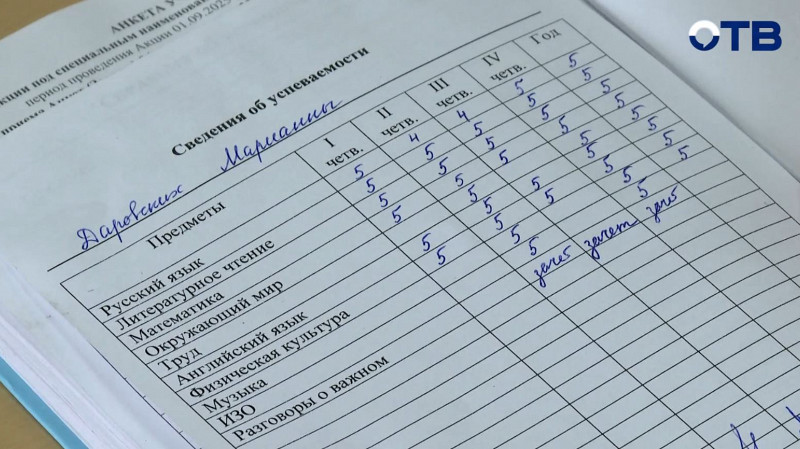 ОТВ
АНКЕТА У
кции под специальным наименован
период проведения Акции 01.09.2025
Сведения об успеваемости
Даровских Марианны
Предметы I четв. II четв. III четв. IV четв. Год
Русский язык 5 4 4 5 5
Литературное чтение 5 5 5 5 5
Математика 5 5 5 5 5
Окружающий мир 5 5 5 5 5
Труд
Английский язык
Физическая культура
Музыка
ИЗО
Разговоры о важном зачет зачет зачет